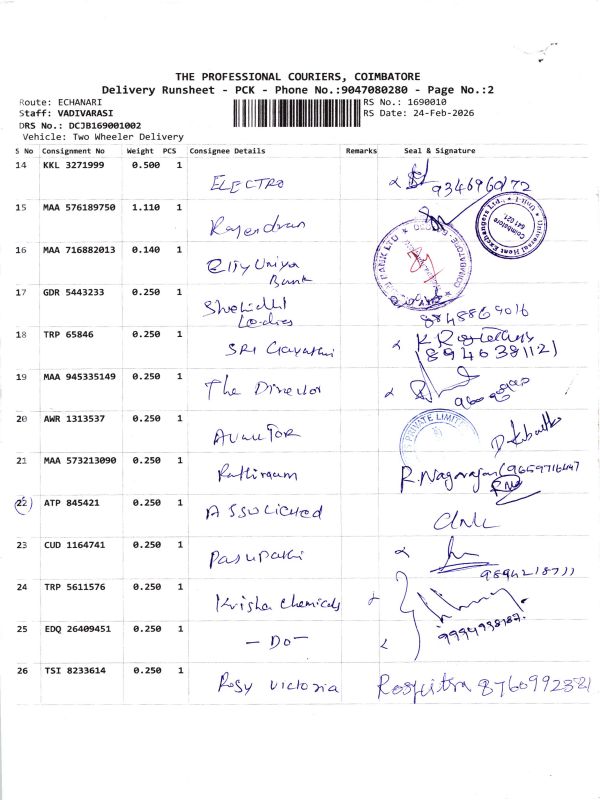 THE PROFESSIONAL COURIERS, COIMBATORE
Delivery Runsheet - PCK - Phone No.:9047080280 - Page No.:2
Route: ECHANARI RS No.: 1690010
Staff: VADIVARASI RS Date: 24-Feb-2026
DRS No.: DCJB169001002
Vehicle: Two Wheeler Delivery
S No Consignment No Weight PCS Consignee Details Remarks Seal & Signature
14 KKL 3271999 0.500 1 ELECTRO
15 MAA 576189750 1.110 1 Rajendran
16 MAA 716882013 0.140 1 City Union
Bank
17 GDR 5443233 0.250 1
8848869016
18 TRP 65846 0.250 1 SRI Gayathri
8946381121
19 MAA 945335149 0.250 1 The Director
20 AWR 1313537 0.250 1
PRIVATE LIMITED
21 MAA 573213090 0.250 1 R. Nagarajan (9659716447
22 ATP 845421 0.250 1
23 CUD 1164741 0.250 1 Pasupathi
24 TRP 5611576 0.250 1 Krisha Chemicals
25 EDQ 26409451 0.250 1 - DO -
9994938187.
26 TSI 8233614 0.250 1 Rosy victoria 8760992381